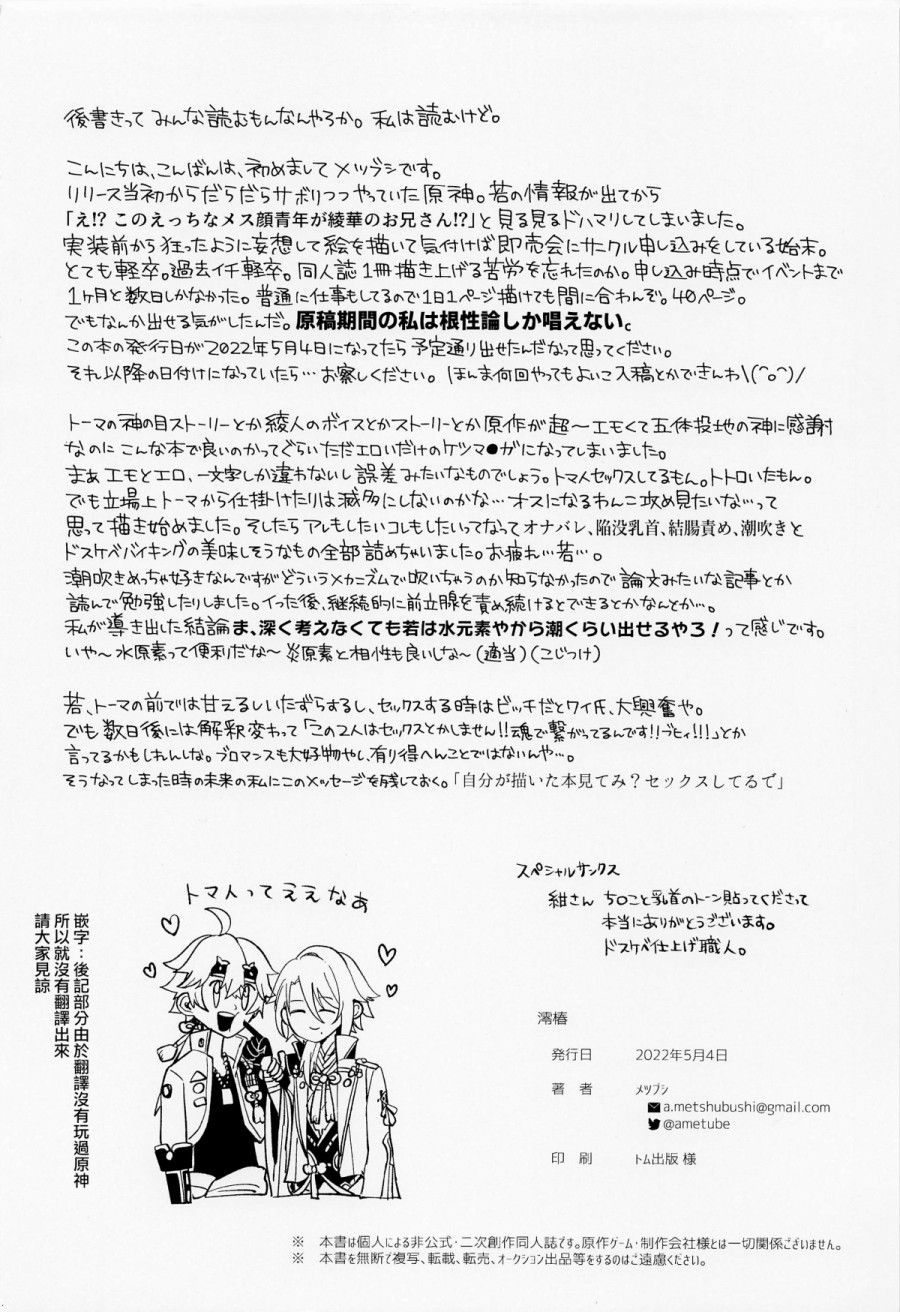 後書きって みんな読むもんなんやろか。私は読むけど。
こんにちは、こんばんは、初めましてメツブシです。
リリース当初からだらだらサボりつつやっていた原神。若の情報が出てから
「え!? このえっちなメス顔青年が綾華のお兄さん!?」と見る見るドハマリしてしまいました。
実装前から狂ったように妄想して絵を描いて気付けば即売会にサークル申し込みをしている始末。
とても軽卒。過去イチ軽卒。同人誌1冊描き上げる苦労を忘れたのか。申し込み時点でイベントまで
1ヶ月と数日しかなかった。普通に仕事もしてるので1日1ページ描けても間に合わんぞ。40ページ。
でもなんか出せる気がしたんだ。原稿期間の私は根性論しか唱えない。
この本の発行日が2022年5月4日になってたら予定通り出せたんだなって思ってください。
それ以降の日付けになっていたら…お察しください。ほんま何回やってもよいこ入稿とかできんわ\(^o^)/
トーマの神の目ストーリーとか綾人のボイスとかストーリーとか原作が超〜エモくて五体投地の神に感謝
なのにこんな本で良いのかってぐらいただエロいだけのケツマ●ガになってしまいました。
まぁエモとエロ、一文字しか違わないし誤差みたいなものでしょう。トマ人セックスしてるもん。トトロいたもん。
でも立場上トーマから仕掛けたりは滅多にしないのかな…オスになるわんこ攻め見たいな…って
思って描き始めました。そしたらアレもしたいコレもしたいってなってオナバレ、陥没乳首、結腸責め、潮吹きと
ドスケベバイキングの美味しそうなもの全部詰めちゃいました。お疲れ…若…。
潮吹きめっちゃ好きなんですがどういうメカニズムで吹いちゃうのか知らなかったので論文みたいな記事とか
読んで勉強したりしました。イった後、継続的に前立腺を責め続けるとできるとかなんとか…。
私が導き出した結論ま、深く考えなくても若は水元素やから潮くらい出せるやろ！って感じです。
いや〜水原素って便利だな〜炎原素と相性も良いしな〜(適当)(こじつけ)
若、トーマの前では甘えるしいたずらするし、セックスする時はビッチだとワイ氏、大興奮や。
でも数日後には解釈変わって「この2人はセックスとかしません!!魂で繋がってるんです!!ブヒィ!!!」とか
言ってるかもしれんしな。ブロマンスも大好物やし、有り得へんことではないんや…。
そうなってしまった時の未来の私にこのメッセージを残しておく。「自分が描いた本見てみ？セックスしてるで」
スペシャルサンクス
紺さん ちOこと乳首のトーン貼ってくださって
本当にありがとうございます。
ドスケベ仕上げ職人。
トマ人ってええなぁ
嵌字：後記部分由於翻譯沒有玩過原神
所以就沒有翻譯出來
請大家見諒
澪椿
発行日 2022年5月4日
著 者 メツブシ
a.metshubushi@gmail.com
@ametube
印 刷 トム出版 様
※ 本書は個人による非公式・二次創作同人誌です。原作ゲーム・制作会社様とは一切関係ございません。
※ 本書を無断で複写、転載、転売、オークション出品等をするのはご遠慮ください。